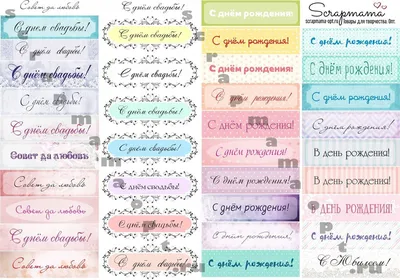 Совет да любовь
С днём свадьбы!
С днём свадьбы!
С днём свадьбы!
С днём свадьбы!
С днём свадьбы!
Совет да любовь
Совет да любовь
Совет да любовь
С днём свадьбы!
С днём свадьбы!
С днём свадьбы!
С днём свадьбы!
С днём свадьбы!
С днём свадьбы!
С днём свадьбы!
С днём свадьбы!
С днём свадьбы!
С днём свадьбы!
С днём свадьбы!
С днём свадьбы!
С днём рождения!
С днём рождения!
С днём рождения!
С днём рождения!
С днём рождения!
С днём рождения!
С днём рождения!
С днём рождения!
С днём рождения!
С днём рождения!
Scrapmama
scrapmama-opt.ru Товары для творчества. Опт.
С днём рождения!
С днём рождения!
С днём рождения!
С днём рождения!
В день рождения!
В день рождения!
В день рождения!
С днём рождения!
С Юбилеем!